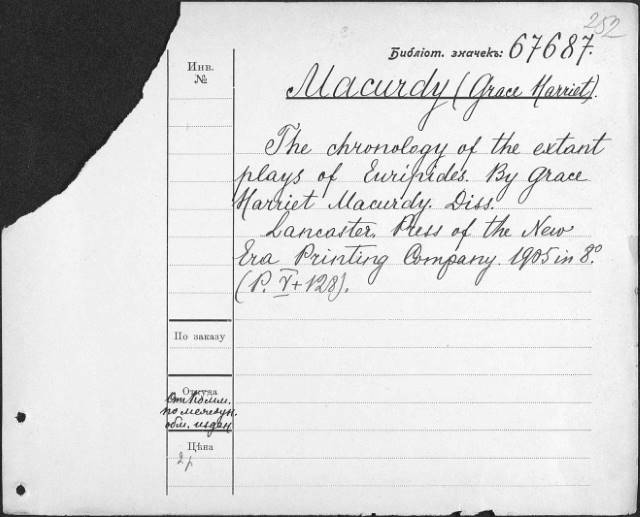 252
Библіот. значекъ: 67687.
Инв.
№
Macurdy (Grace Harriet).
The chronology of the extant
plays of Euripides. By Grace
Harriet Macurdy. Diss.
Lancaster. Press of the New
Era Printing Company. 1905 in 8º.
(P. V + 128).
По заказу
Откуда
От Комм.
по междун.
обм. издан.
Цѣна
2 р